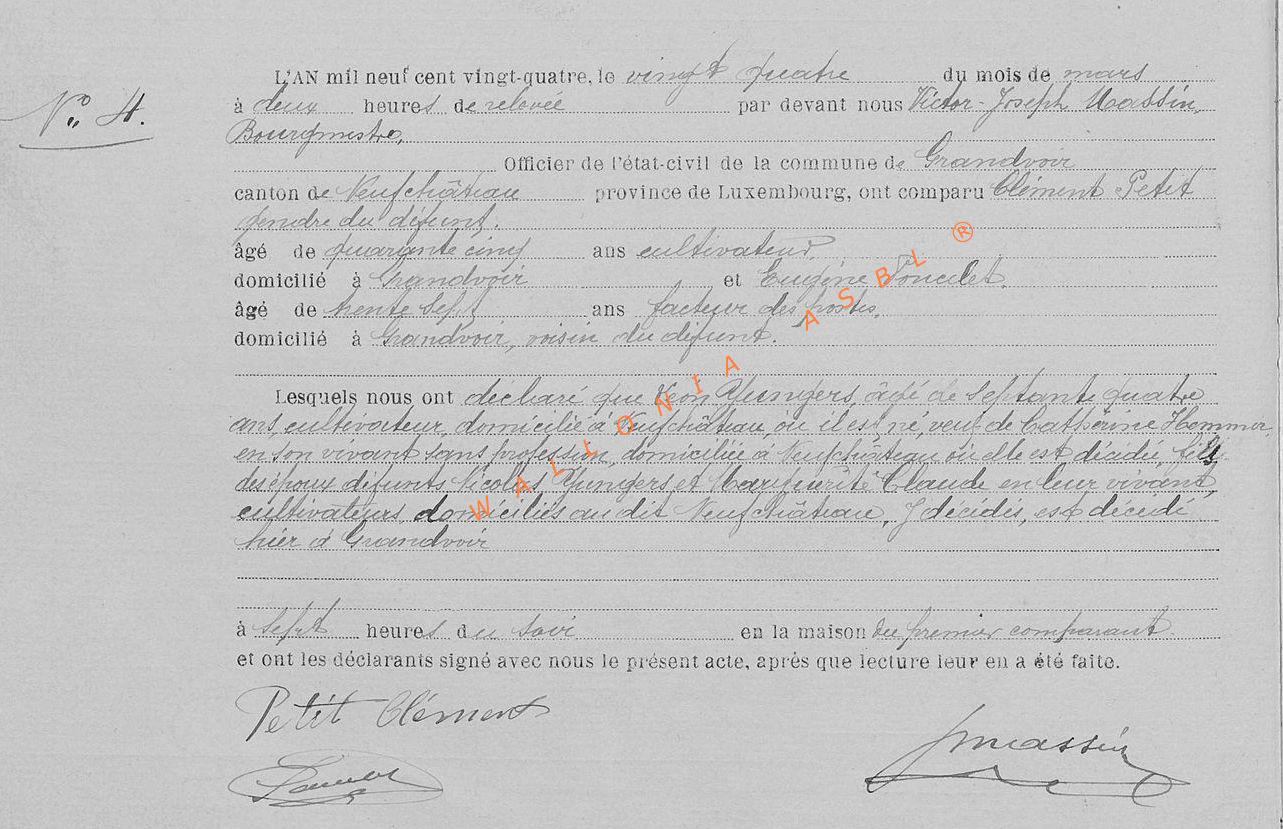 L'AN mil neuf cent vingt-quatre, le vingt quatre du mois de mars
N° 4.
à deux heures de relevée par devant nous Victor-Joseph Massin,
Bourgmestre,
Officier de l'état-civil de la commune de Grandvoir
canton de Neufchâteau province de Luxembourg, ont comparu Clément Petit
gendre du défunt.
âgé de quarante cinq ans cultivateur,
domicilié à Grandvoir et Eugène Poncelet,
âgé de trente sept ans facteur des postes,
domicilié à Grandvoir, voisin du défunt.
Lesquels nous ont déclaré que Léon Yungers, âgé de septante quatre
ans, cultivateur, domicilié à Neufchâteau, où il est né, veuf de Cathérine Hemmer,
en son vivant sans profession, domiciliée à Neufchâteau où elle est décédée, fils
des époux défunts Nicolas Yungers et Marguérite Claude en leur vivant,
cultivateurs, domiciliés au dit Neufchâteau, y décédés, est décédé
hier à Grandvoir
à sept heures du soir en la maison du premier comparant
et ont les déclarants signé avec nous le présent acte, après que lecture leur en a été faite.
Petit Clément
Jmassin
WALLONIA ASBL ®